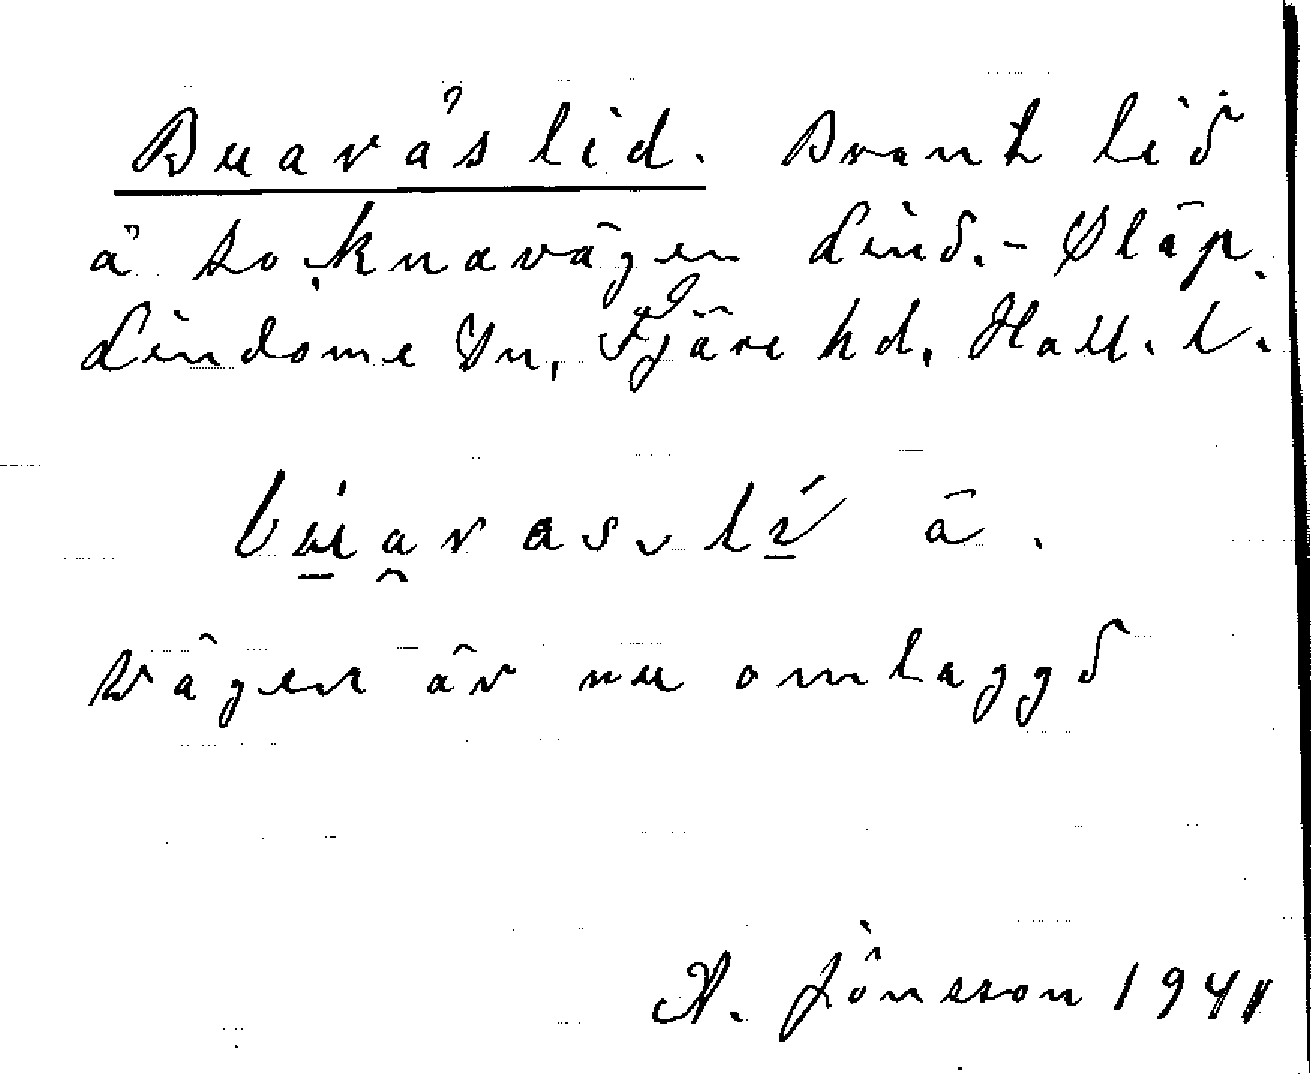 Buaråslid. Brant lid
å soknavägen Lind.- Släp.
Lindome Sn, Fjäre hd, Hall. l.
Vägen är nu omlaggd
A. Jönsson 1941